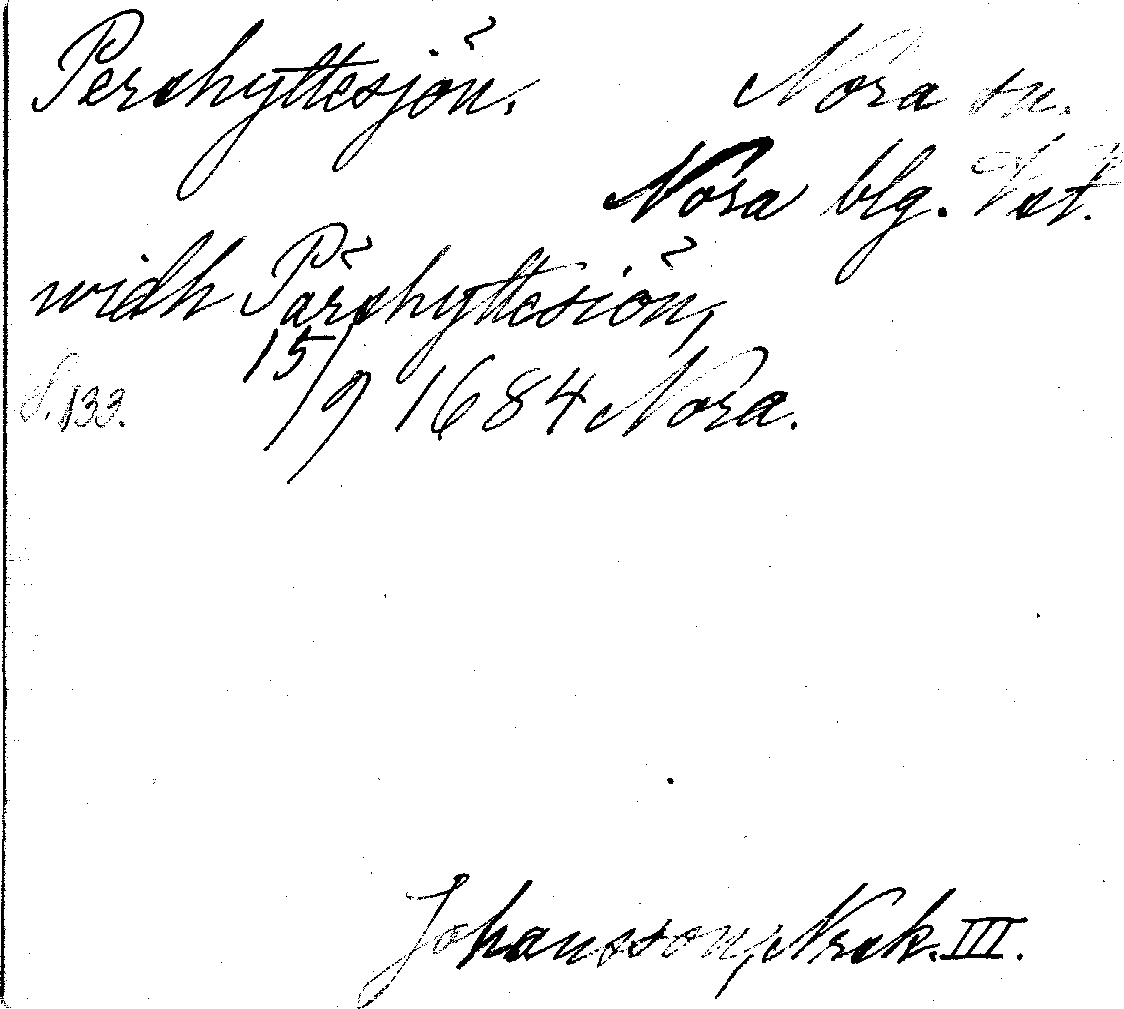 Pershyttesjön. Nora sn.
Nora blg. Vst.
widh Pärshyttesiön,
S. 133. 15/9 1684 Nora.
Johansson, Nrck. III.